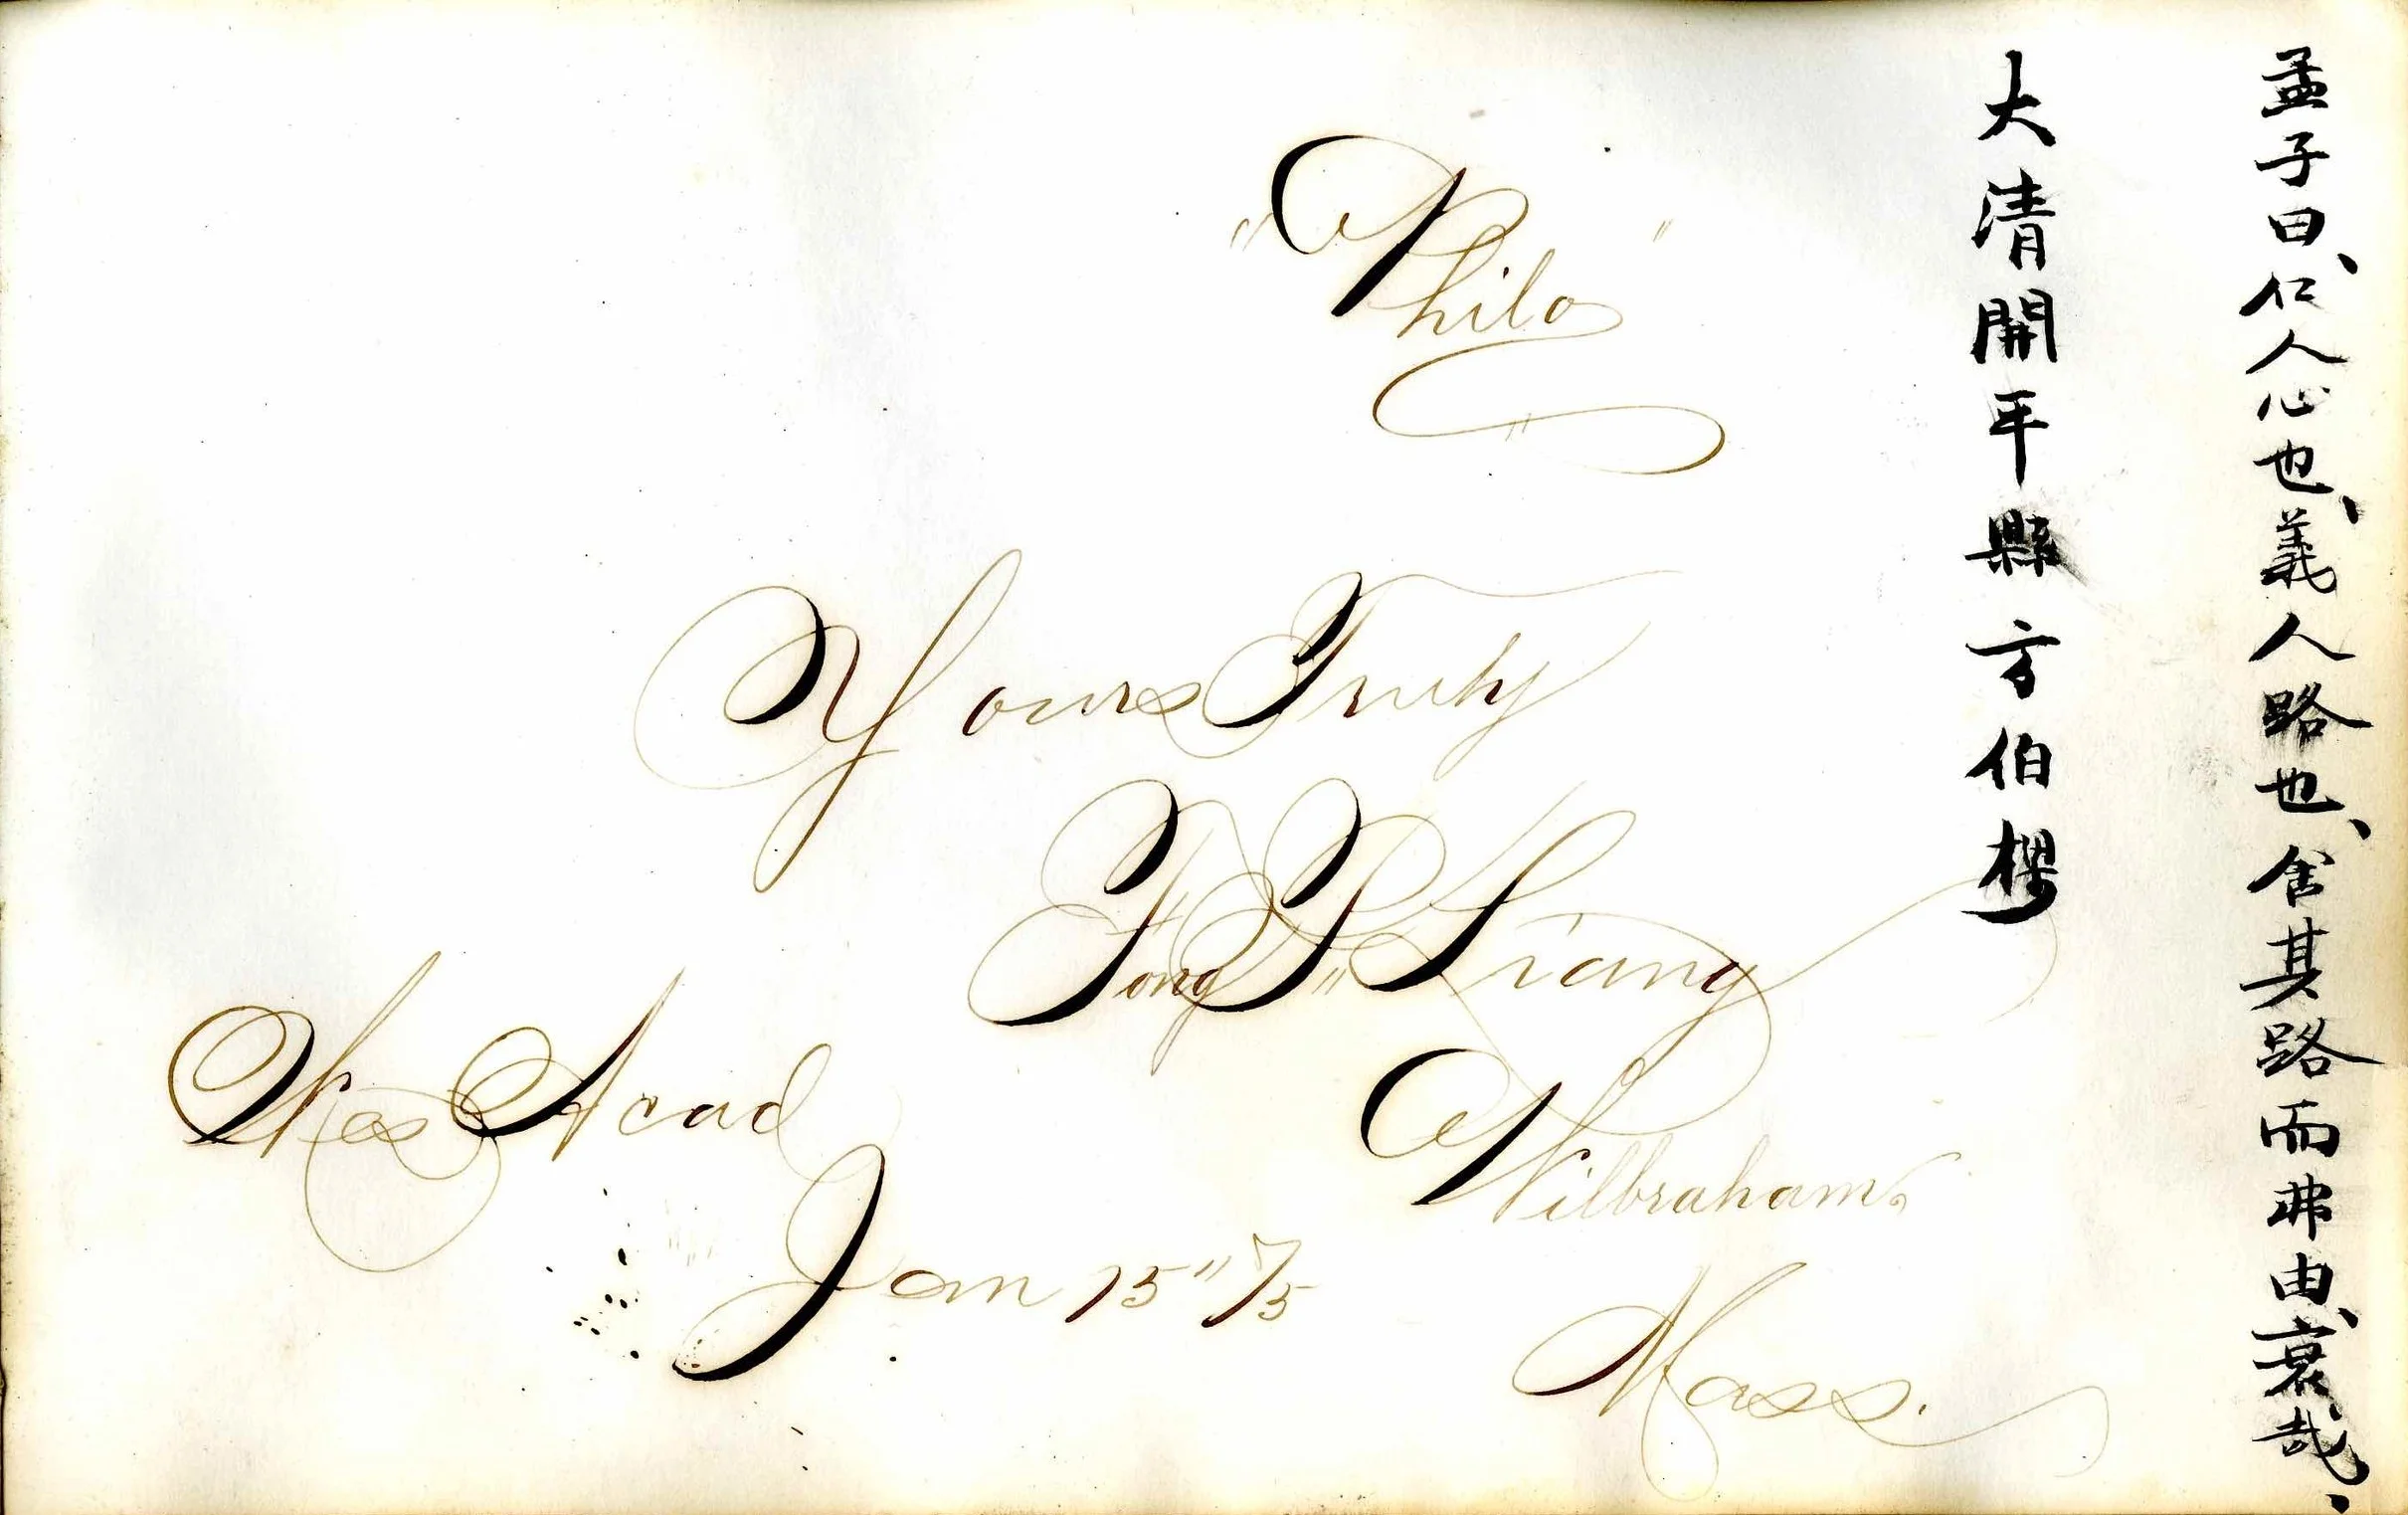 孟子曰、仁人心也、義人路也、舍其路而弗由、哀哉、
大清開平縣方伯樑
"Philo"
Yours Truly
Fong P" Liang
Wes Acad
Wilbraham,
Jan 15" /75
Mass.